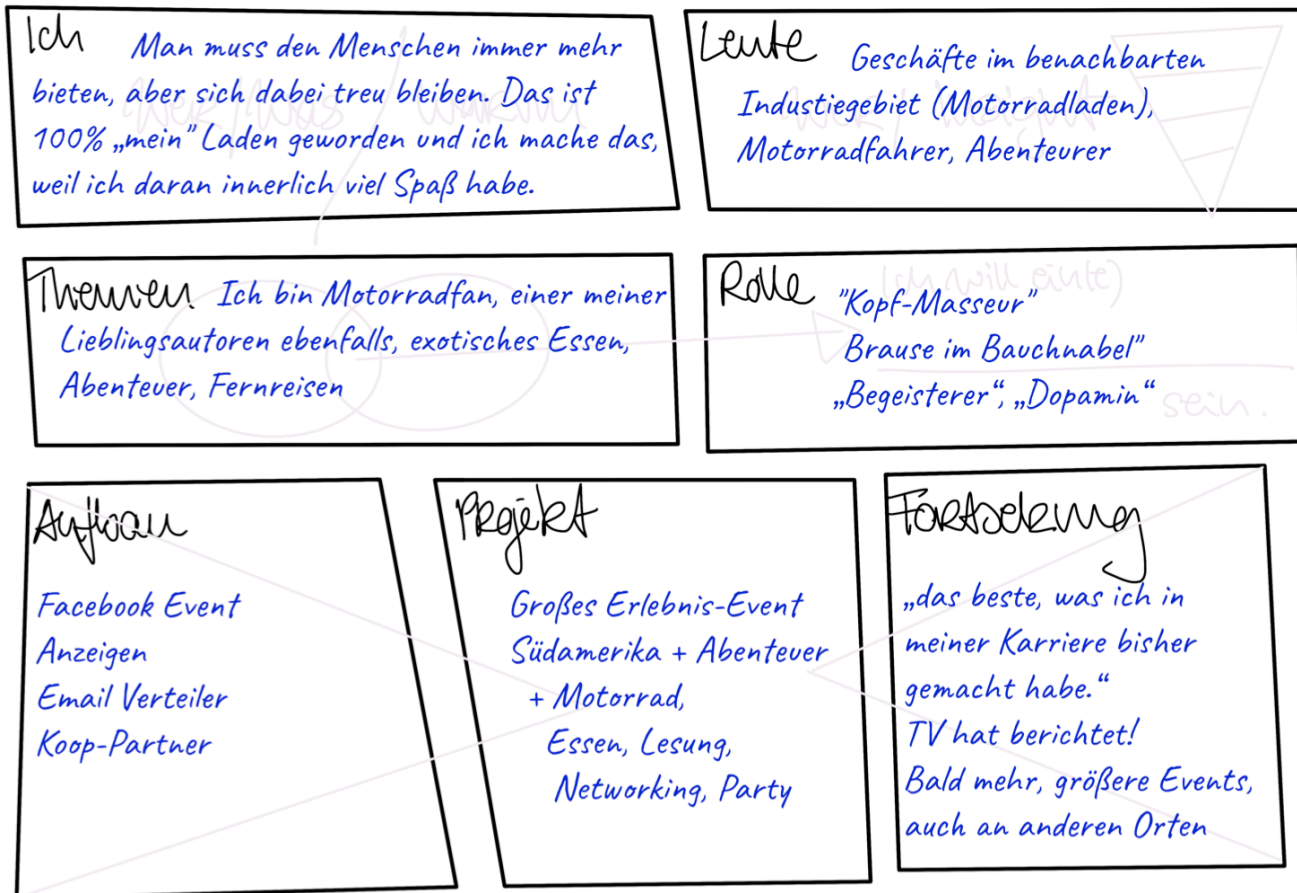 Ich Man muss den Menschen immer mehr
bieten, aber sich dabei treu bleiben. Das ist
100% „mein" Laden geworden und ich mache das,
weil ich daran innerlich viel Spaß habe.
Leute Geschäfte im benachbarten
Industiegebiet (Motorradladen),
Motorradfahrer, Abenteurer
Themen Ich bin Motorradfan, einer meiner
Lieblingsautoren ebenfalls, exotisches Essen,
Abenteuer, Fernreisen
Rolle (Ich will eine(e)
"Kopf-Masseur"
Brause im Bauchnabel"
„Begeisterer“, „Dopamin“ sein.
Aufbau
Facebook Event
Anzeigen
Email Verteiler
Koop-Partner
Projekt
Großes Erlebnis-Event
Südamerika + Abenteuer
+ Motorrad,
Essen, Lesung,
Networking, Party
Fortsetzung
„das beste, was ich in
meiner Karriere bisher
gemacht habe.“
TV hat berichtet!
Bald mehr, größere Events,
auch an anderen Orten